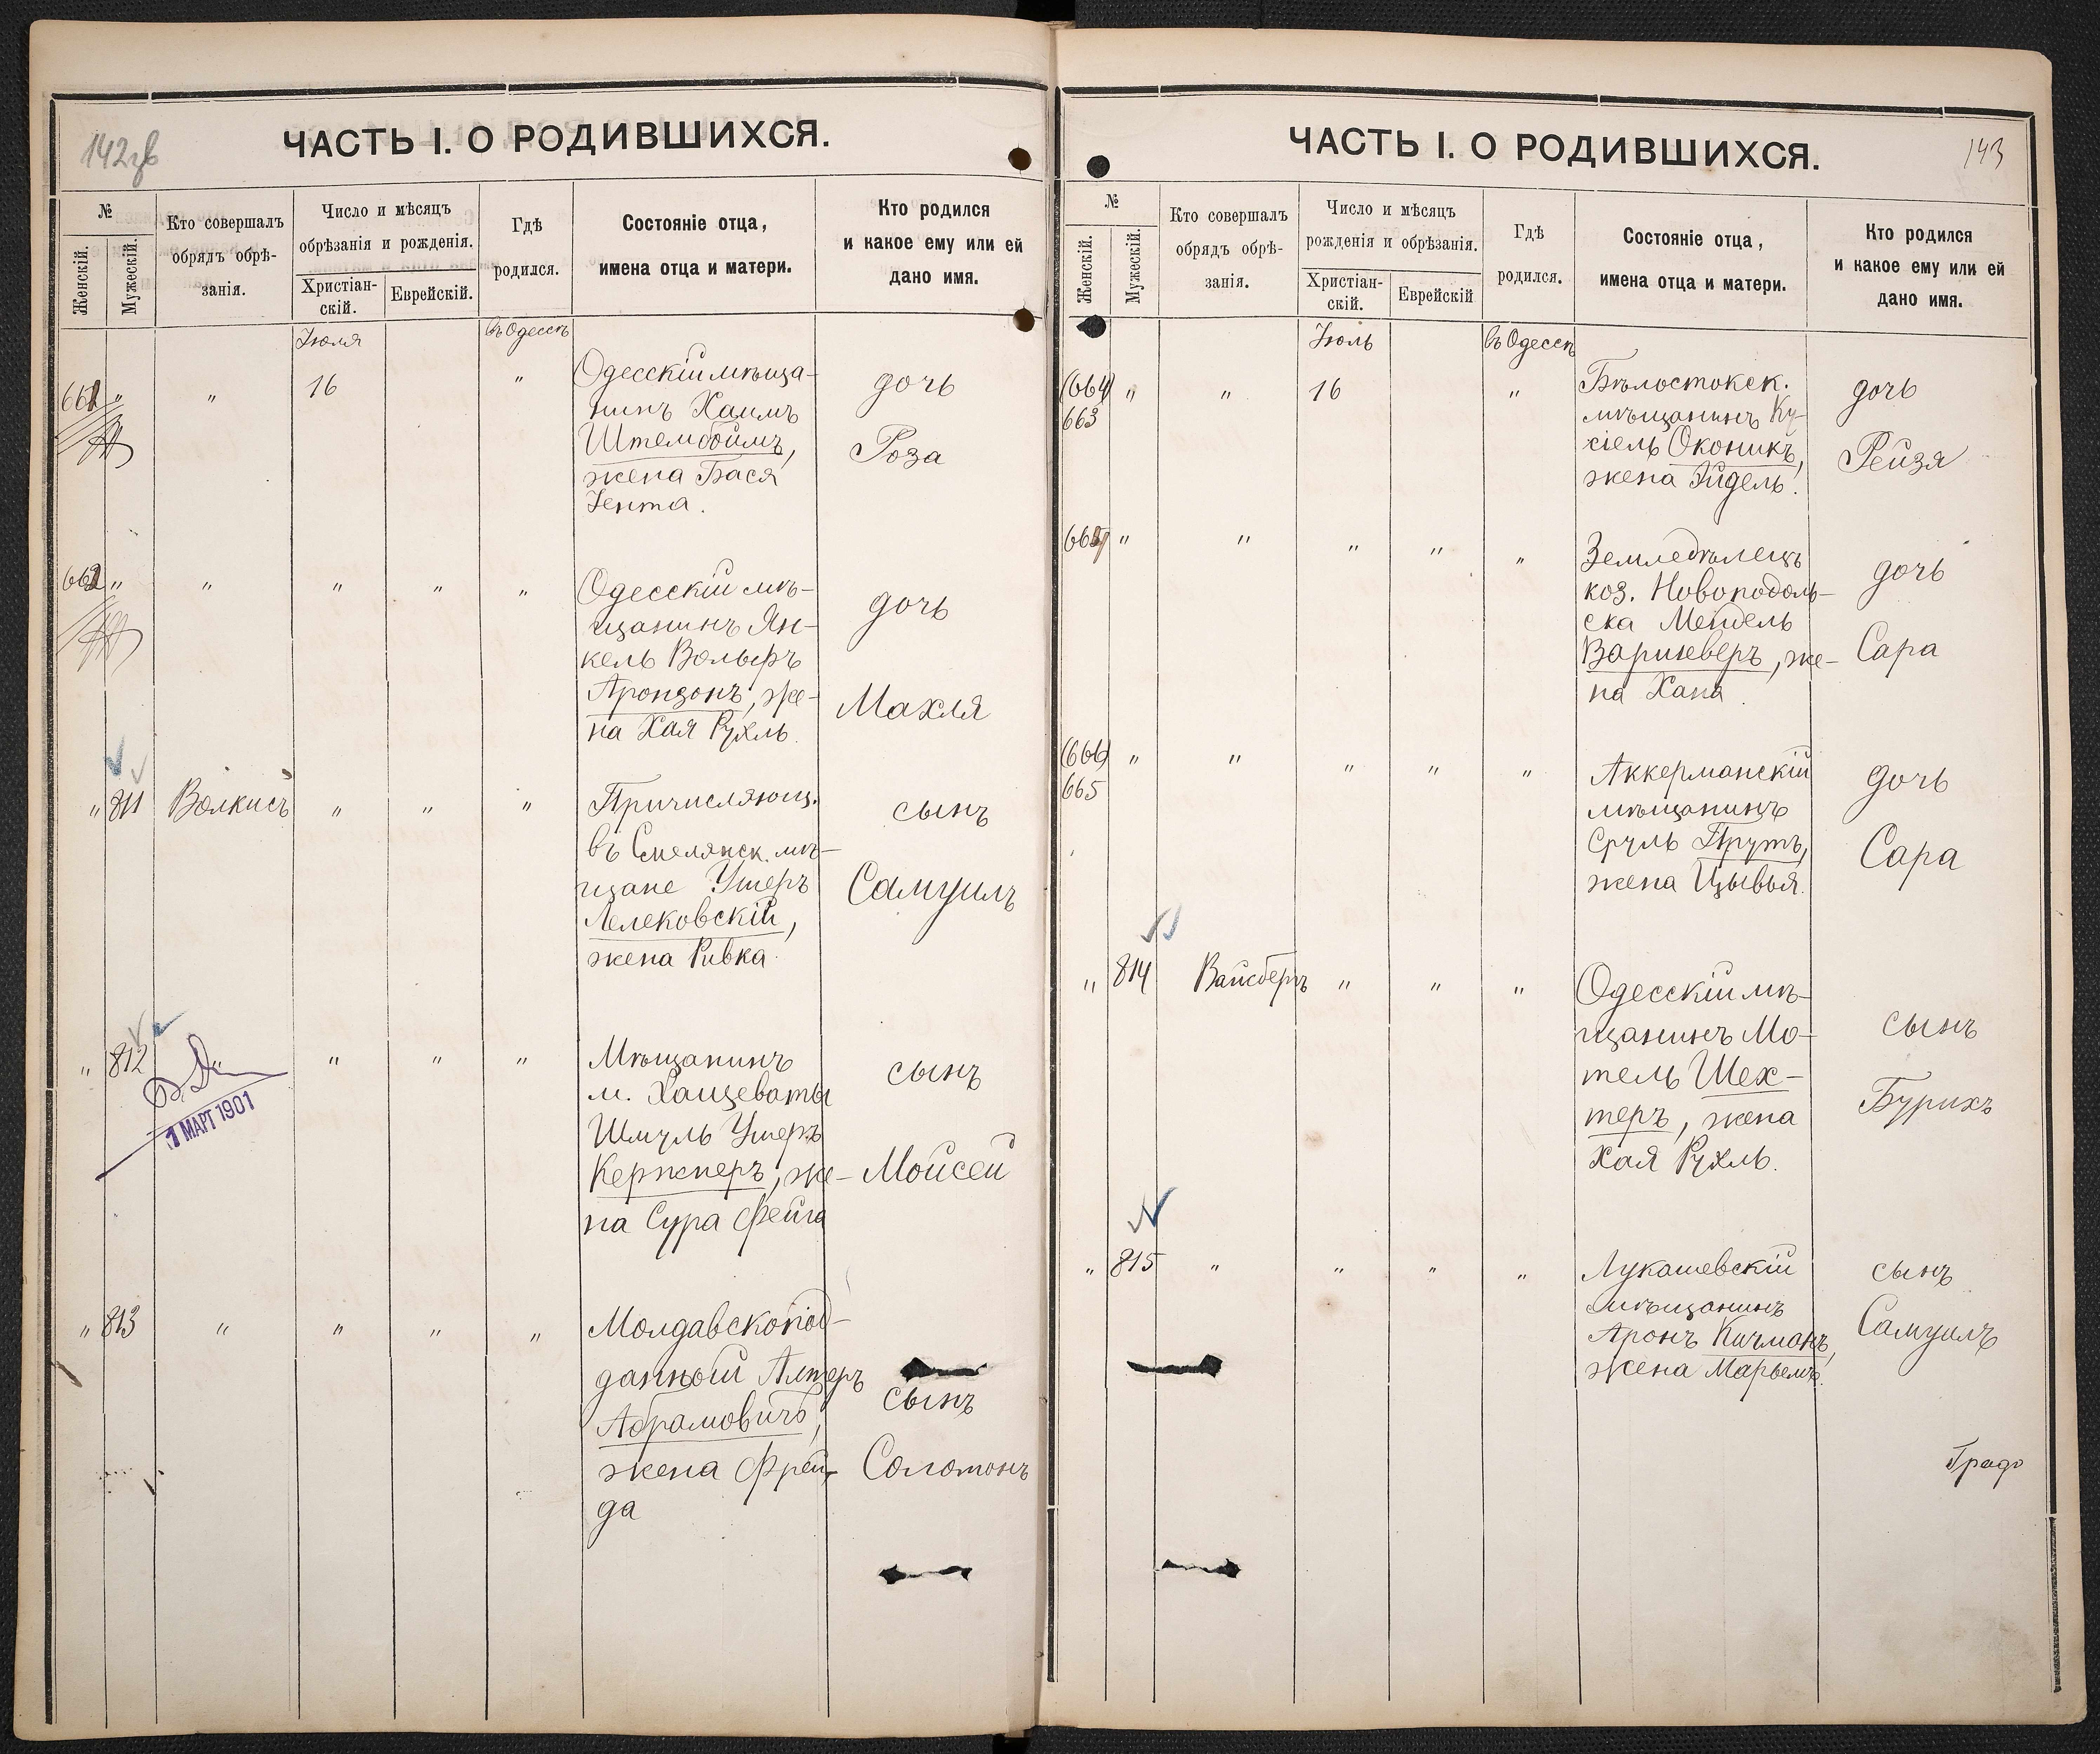 142 об
ЧАСТЬ I. О РОДИВШИХСЯ.
№
Женскій.
Мужескій.
Кто совершалъ
обрядъ обрѣ-
занія.
Число и мѣсяцъ
обрѣзанія и рожденія.
Христіан-
скій.
Еврейскій.
Гдѣ
родился.
Состояніе отца,
имена отца и матери.
Кто родился
и какое ему или ей
дано имя.
Іюля
въ Одессѣ
661 " " 16 " Одесскій мѣща-
нинъ Хаимъ
Штембоймъ,
жена Бася
Іента.
дочь
Роза
662 " " " " " Одесскій мѣ-
щанинъ Ян-
кель Вольфъ
Аронзонъ, же-
на Хая Рухль.
дочь
Махля
" 811 Волкисъ " " " Причисляющ.
въ Смелянск. мѣ-
щане Ушеръ
Лелековскій,
жена Ривка.
сынъ
Самуилъ
" 812 " " " " Мѣщанинъ
м. Хащеваты
Шмуль Ушеръ
Держнеръ, же-
на Сура Фейга
сынъ
Мойсей
1 МАРТ 1901
" 813 " " " " Молдавскопод-
данный Алтеръ
Абрамовичъ,
жена Фрей-
да
сынъ
Соломонъ
143
ЧАСТЬ I. О РОДИВШИХСЯ.
№
Женскій.
Мужескій.
Кто совершалъ
обрядъ обрѣ-
занія.
Число и мѣсяцъ
рожденія и обрѣзанія.
Христіан-
скій.
Еврейскій
Гдѣ
родился.
Состояніе отца,
имена отца и матери.
Кто родился
и какое ему или ей
дано имя.
Іюль
въ Одессѣ
(664) " " 16 " Бѣлостокск.
663
мѣщанинъ Ку-
сіель Оконикъ,
жена Эйдель.
дочь
Рейзя
664 " " " " " Земледѣлецъ
коз. Новоподоль-
ска Мендель
Варшаверъ, же-
на Хана.
дочь
Сара
(666) " " " " " Аккерманскій
665
мѣщанинъ
Сруль Прутъ,
жена Цывья.
дочь
Сара
" 814 Вайсберъ " " " Одесскій мѣ-
щанинъ Мо-
тель Шех-
теръ, жена
Хая Рухль.
сынъ
Бурихъ
" 815 " " " " Лукашевскій
мѣщанинъ
Аронъ Кичманъ,
жена Марьемъ.
сынъ
Самуилъ